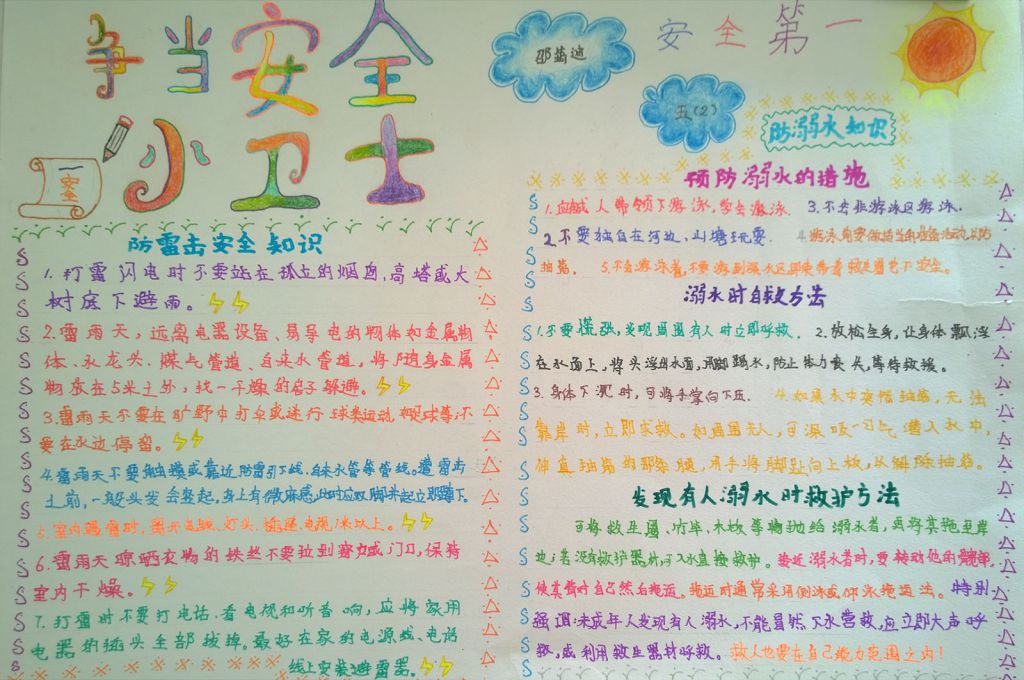 争当安全
小卫士
安全
邵
五(2)
安全第一
防雷击安全知识
1.打雷闪电时不要站在孤立的烟囱,高塔或大
树底下避雨。
2.雷雨天,远离电器设备、易导电的物体如金属物
体、水龙头、煤气管道、自来水管道,将随身金属
物放在5米之外,找一干燥的房子躲避。
3.雷雨天不要在旷野中打伞或进行球类运动,如足球等,不
要在水边停留。
4.雷雨天不要触摸或靠近防雷引下线,自来水管等管线。遭雷击
之前,一般头发会竖起,身上有微麻感,此时应双脚并起立即蹲下。
5.室内遇雷时,离开电线、灯头、插座、电视1米以上。
6.雷雨天晾晒衣物的铁丝不要拉到窗户或门口,保持
室内干燥。
7.打雷时不要打电话、看电视和听音响,应将家用
电器的插头全部拔掉。最好在家的电源线、电话
线上安装避雷器。
防溺水知识
预防溺水的措施
1.应成人带领下游泳,学会游泳.
3.不去非游泳区游泳.
2.不要独自在河边,山塘玩耍.
4.游泳前要做适当的准备活动以防
抽筋.
5.不会游泳者,不要游到深水区即使带着救生圈也不安全。
溺水时自救方法
1.不要慌张,发现周围有人时立即呼救.
2.放松全身,让身体飘浮
在水面上,将头浮出水面,用脚踢水,防止体力丧失,等待救援。
3.身体下沉时,可将手掌向下压.
4.如果水中突然抽筋,无法
靠岸时,立即求救。如周围无人,可深吸一口气潜入水中,
伸直抽筋的那条腿,用手将脚趾向上板,以解除抽筋。
发现有人溺水时救护方法
可将救生圈、竹竿、木板等物抛给溺水者,再将其拖至岸
边;若没有救护器材,可入水直接救护。接近溺水者时,要转动他的髋部,
使其背时自己然后拖运。拖运时通常采用侧泳或仰泳拖运法。特别
强调:未成年人发现有人溺水,不能冒然下水营救,应立即大声呼
救,或利用救生器材呼救。救人也要在自己能力范围之内!